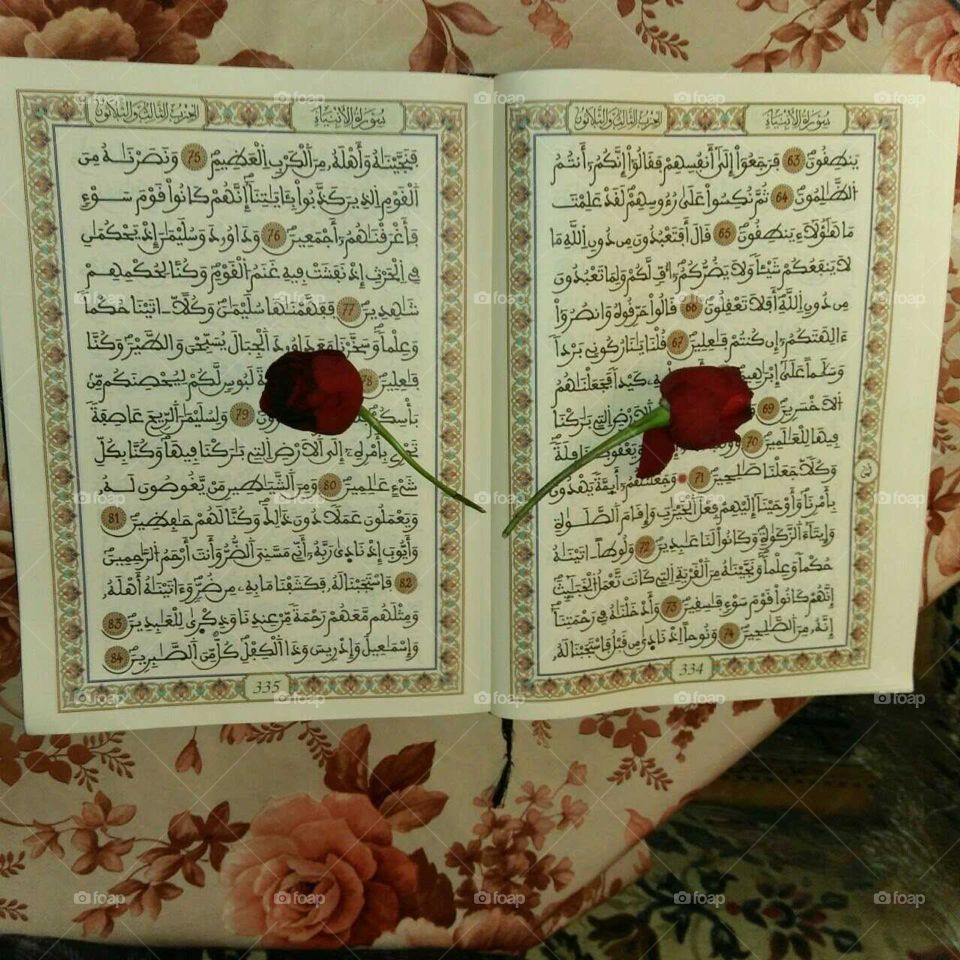 سورة الأنبياء
الحزب الثالث والثلاثون
ينطقون 63 فرجعوا إلى أنفسهم فقالوا إنكم أنتم
الظالمون 64 ثم نكسوا على رءوسهم لقد علمت
ما هؤلاء ينطقون 65 قال أفتعبدون من دون الله ما
لا ينفعكم شيئا ولا يضركم أف لكم ولما تعبدون
من دون الله أفلا تعقلون 66 قالوا حرقوه وانصروا
ءالهتكم إن كنتم فاعلين 67 قلنا يانار كوني بردا
وسلاما على إبراهيم به كيدا فجعلناهم
الاخسرين 69 الارض التي باركنا
فيها للعالمين 70 ويعقوب نافلة
وكلا جعلنا صالحين 71 وجعلناهم أيمة يهدون
ثمن
بأمرنا وأوحينا إليهم فعل الخيرات وإقام الصلواة
وإيتاء الزكواة وكانوا لنا عابدين 72 ولوطا اتيناه
حكما وعلما ونجيناه من القرية التي كانت تعمل الخبائث
إنهم كانوا قوم سوء فاسقين 73 وأدخلناه في رحمتنا
إنه من الصالحين 74 ونوحا اذ نادى من قبل فاستجبنا له
334
سورة الأنبياء
الحزب الثالث والثلاثون
فنجيناه وأهله من الكرب العظيم 75 ونصرناه من
القوم الذين كذبوا بئاياتنا إنهم كانوا قوم سوء
فأغرقناهم أجمعين 76 وداوود وسليمان إذ يحكمان
في الحرث إذ نفشت فيه غنم القوم وكنا لحكمهم
شاهدين 77 ففهمناها سليمان وكلا اتينا حكما
وعلما وسخرنا مع داوود الجبال يسبحن والطير وكنا
فاعلين 78 لبوس لكم ليحصنكم من
بأسكم 79 ولسليمان الريح عاصفة
تجري بأمره إلى الارض التي باركنا فيها وكنا بكل
شيء عالمين 80 ومن الشياطين من يغوصون له
ويعملون عملا دون ذالك وكنا لهم حافظين 81
وأيوب إذ نادى ربه أني مسني الضر وأنت أرحم الراحمين
82 فاستجبنا له فكشفنا ما به من ضر وءاتيناه أهله
ومثلهم معهم رحمة من عندنا وذكرى للعابدين 83
وإسماعيل وإدريس وذا الكفل كل من الصابرين 84
335
foap